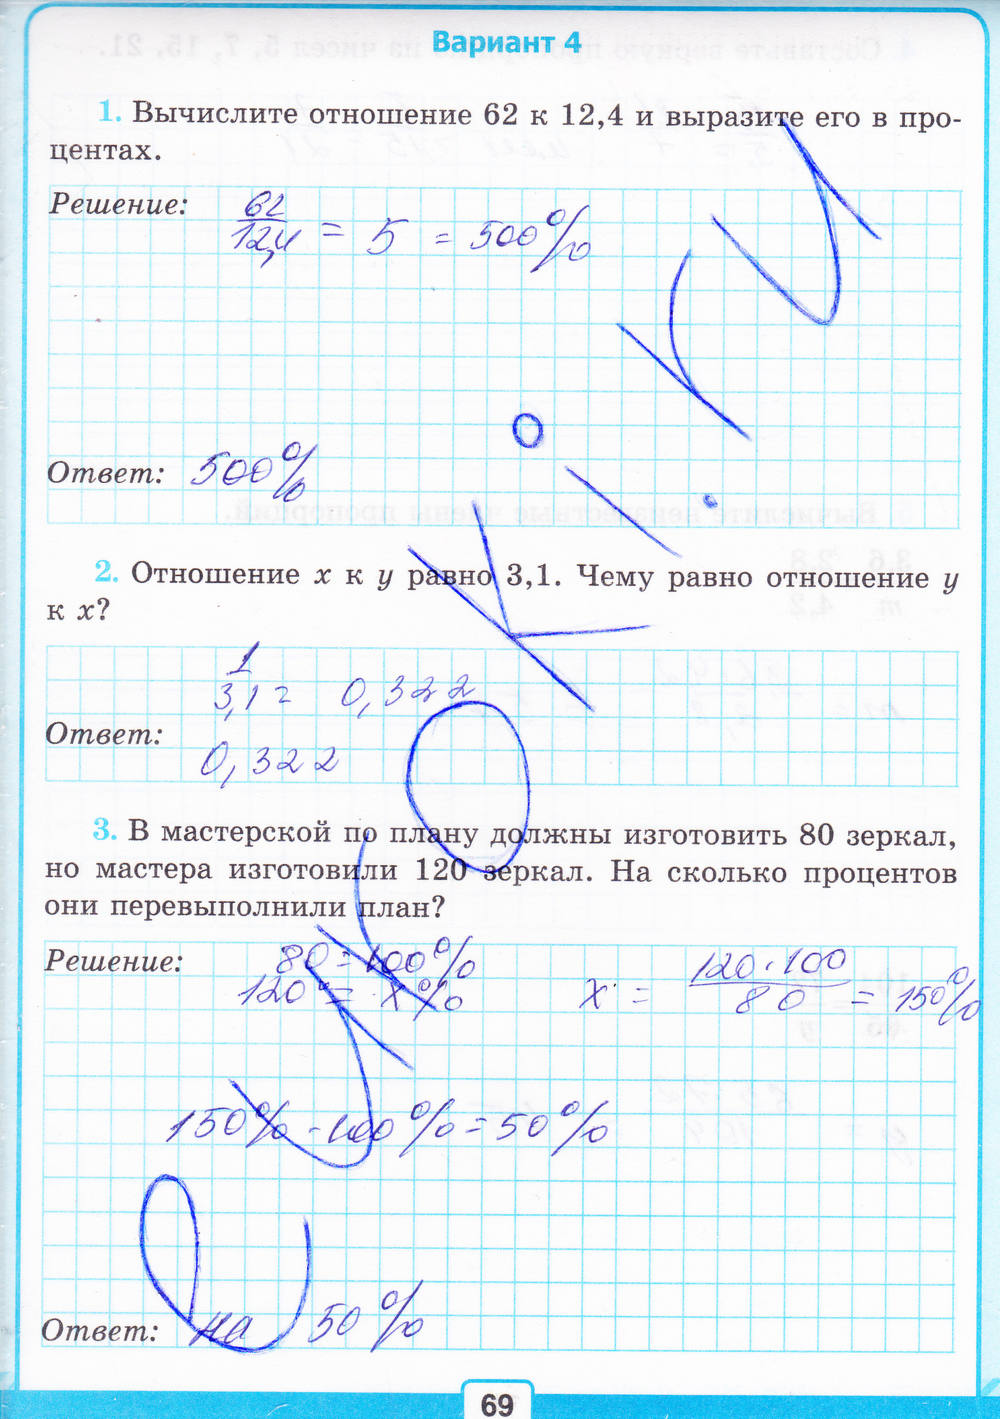 Вариант 4
1. Вычислите отношение 62 к 12,4 и выразите его в про-
центах.
Решение: 62/12,4 = 5 = 500%
Ответ: 500%
2. Отношение x к y равно 3,1. Чему равно отношение y
к x?
1/3,1 = 0,322
Ответ:
0,322
3. В мастерской по плану должны изготовить 80 зеркал,
но мастера изготовили 120 зеркал. На сколько процентов
они перевыполнили план?
Решение: 80 = 100%
120 = x% x = 120·100/80 = 150%
150% - 100% = 50%
Ответ: на 50%
69